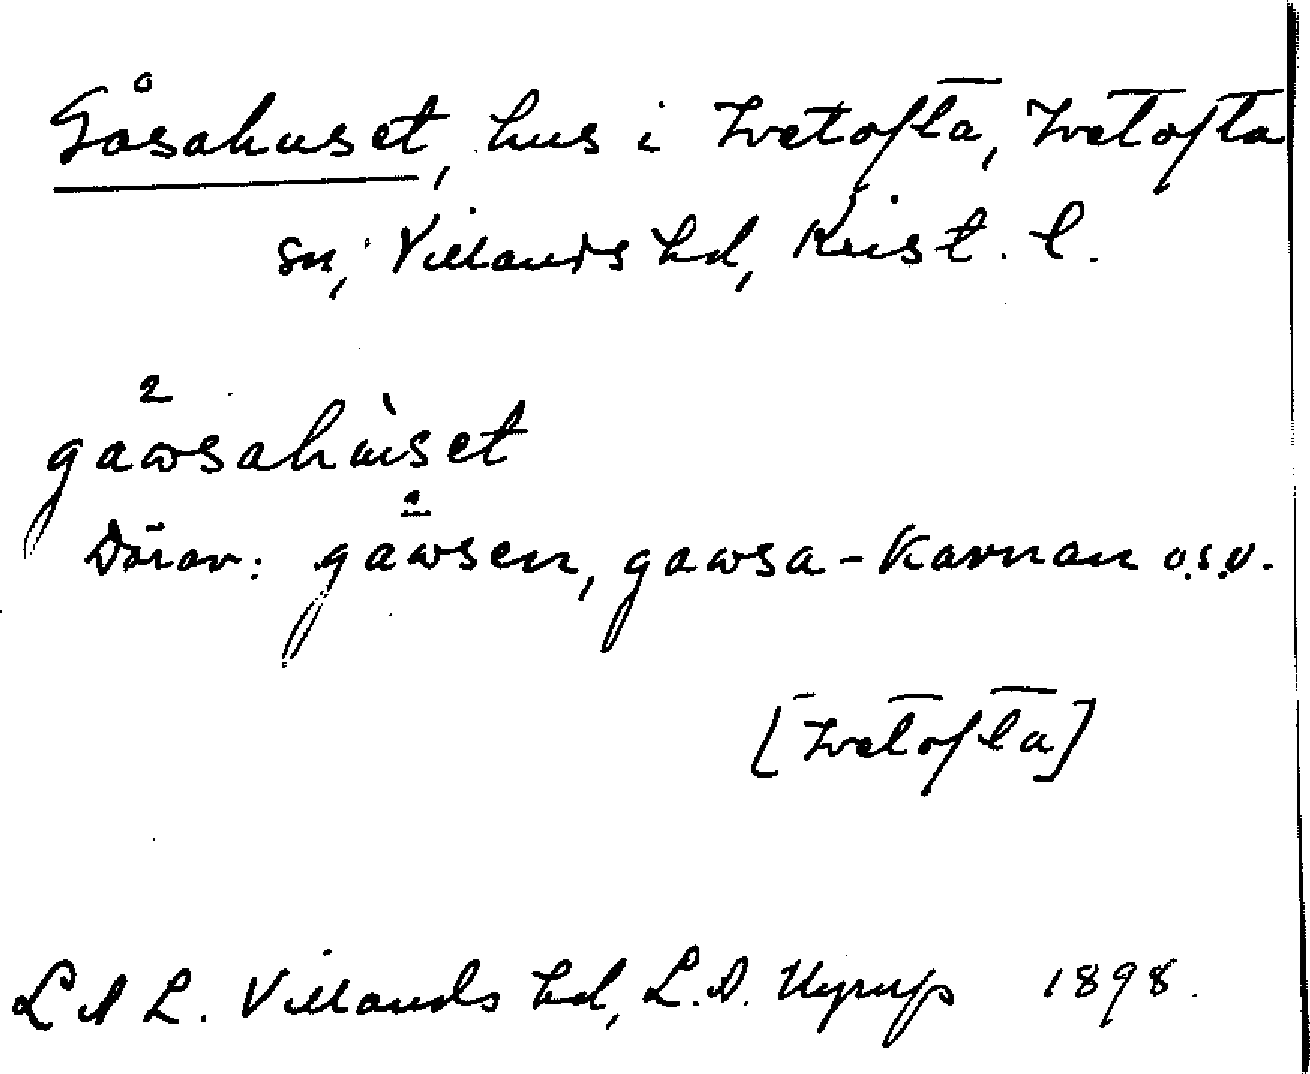 Gåsahuset, hus i Ivetofta, Ivetofta
sn, Villands hd, Krist. l.
2
gawsahùset
Därav: gawsen, gawsa-Karnan o.s.v.
[Ivetofta]
L A L. Villands hd, L.A. Nyrup 1898.